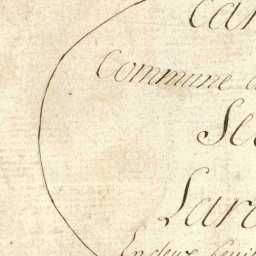 Car
Commune d
Se
Lar
En deux feui